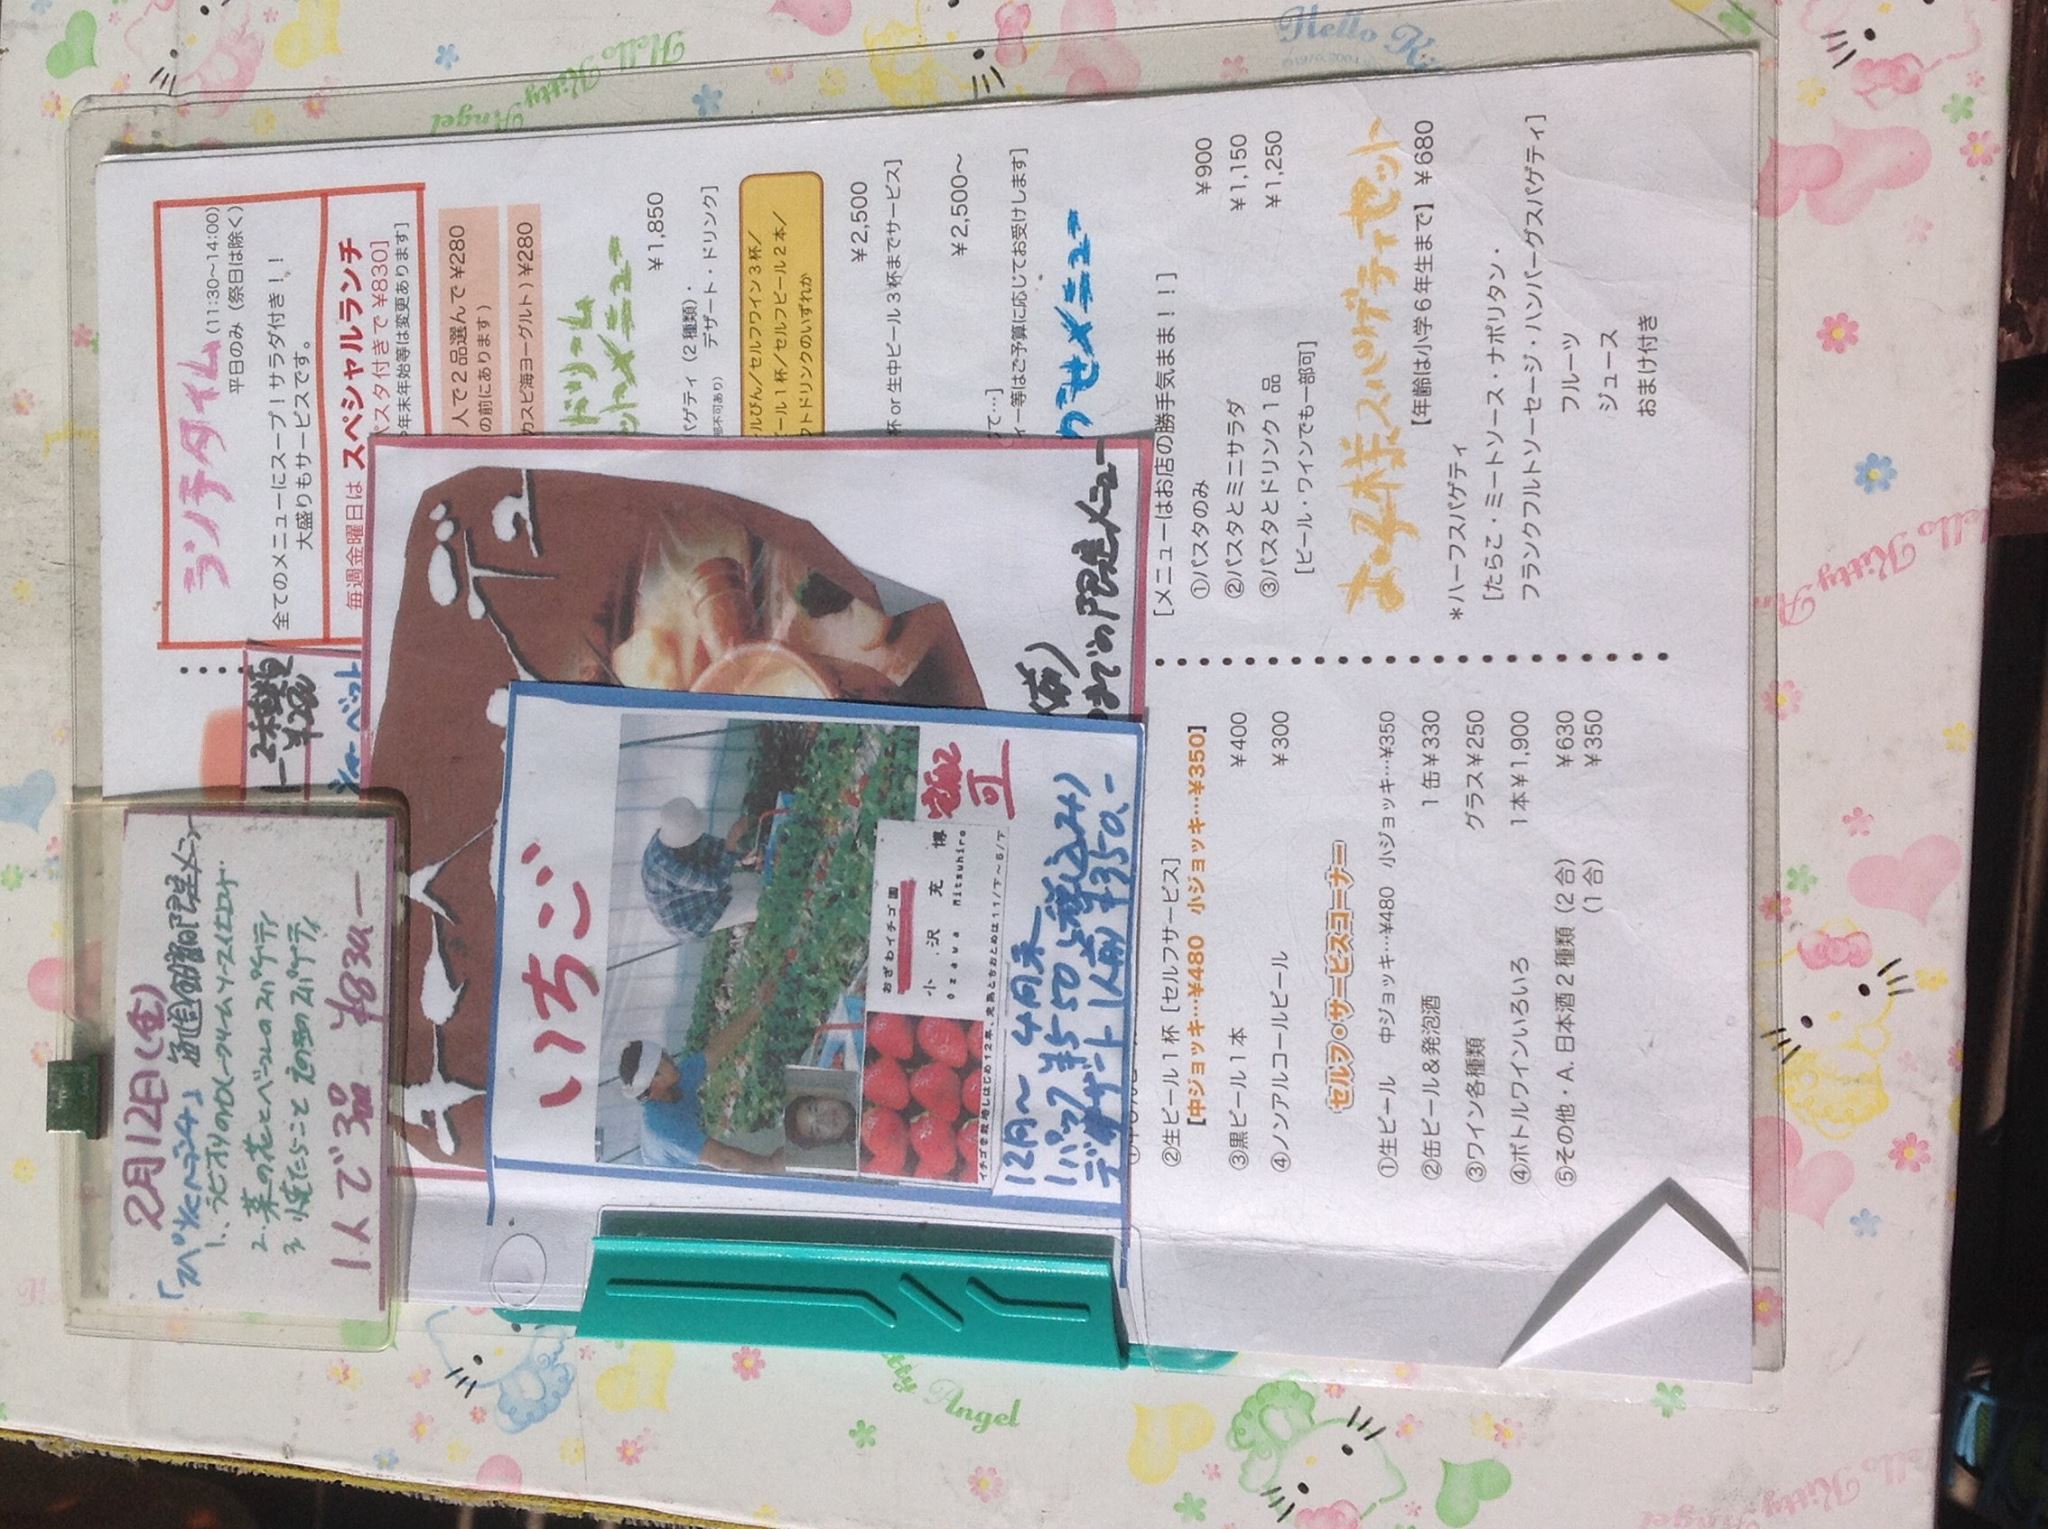 2月12日(金)
「スペシャルランチ」毎週金曜日限定メニュー
2.菜の花とベーコンのスパゲティ
1人で3品 ¥830-
ランチタイム(11:30〜14:00)
平日のみ(祭日は除く)
全てのメニューにスープ!サラダ付き!!
大盛りもサービスです。
毎週金曜日はスペシャルランチ
パスタ付きで¥830]
年末年始等は変更あります]
人で2品選んで¥280
の前にあります)
カスピ海ヨーグルト)¥280
ドリーム
ットメニュー
¥1,850
パゲティ(2種類)・
デザート・ドリンク]
部不可あり)
ルびん/セルフワイン3杯/
ール1杯/セルフビール2本/
フトドリンクのいずれか
¥2,500
杯or生中ビール3杯までサービス]
¥2,500〜
ィー等はご予算に応じてお受けします]
わせメニュー
[メニューはお店の勝手気まま!!]
①パスタのみ ¥900
②パスタとミニサラダ ¥1,150
③パスタとドリンク1品 ¥1,250
[ビール・ワインでも一部可]
お子様スパゲティセット
[年齢は小学6年生まで]¥680
*ハーフスパゲティ
[たらこ・ミートソース・ナポリタン・
フランクフルトソーセージ・ハンバーグスパゲティ]
フルーツ
ジュース
おまけ付き
シャーベット
までの限定メニュー
いちご
おざわイチゴ園
小沢充博
Ozawa Mitsuhiro
12月〜4月末
1パック¥550
デザート1人前¥350.-
②生ビール1杯[セルフサービス]
[中ジョッキ…¥480 小ジョッキ…¥350]
③黒ビール1本 ¥400
④ノンアルコールビール ¥300
セルフ・サービスコーナー
①生ビール 中ジョッキ…¥480 小ジョッキ…¥350
②缶ビール&発泡酒 1缶¥330
③ワイン各種類 グラス¥250
④ボトルワインいろいろ 1本¥1,900
⑤その他・A.日本酒2種類(2合) ¥630
(1合) ¥350
Hello Kitty
Angel
Hello Kitty
Angel